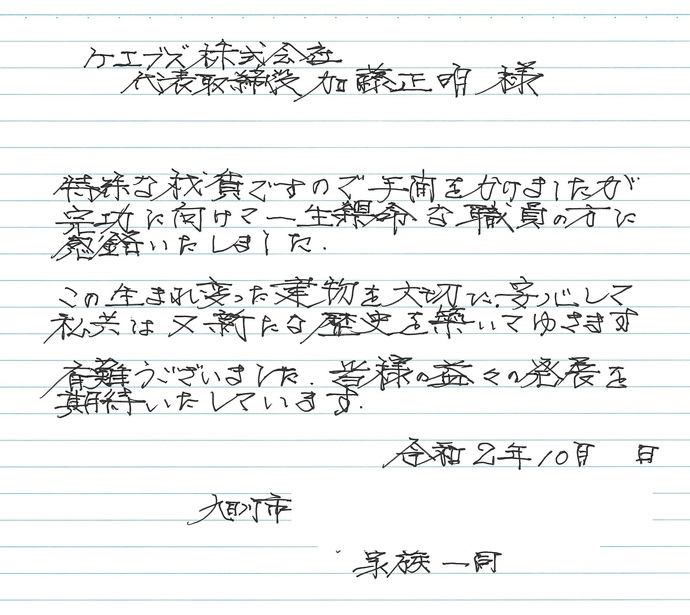 ケエブズ株式会社
代表取締役 加藤正明 様
特殊な材質ですので手間をかけましたが
完功に向けて一生懸命な職員の方に
感銘いたしました.
この生まれ変った建物を大切に、安心して
私共は又新たな歴史を築いてゆきます
有難うございました. 皆様の益々の発展を
期待いたしています.
令和2年10月 日
旭川市
家族一同